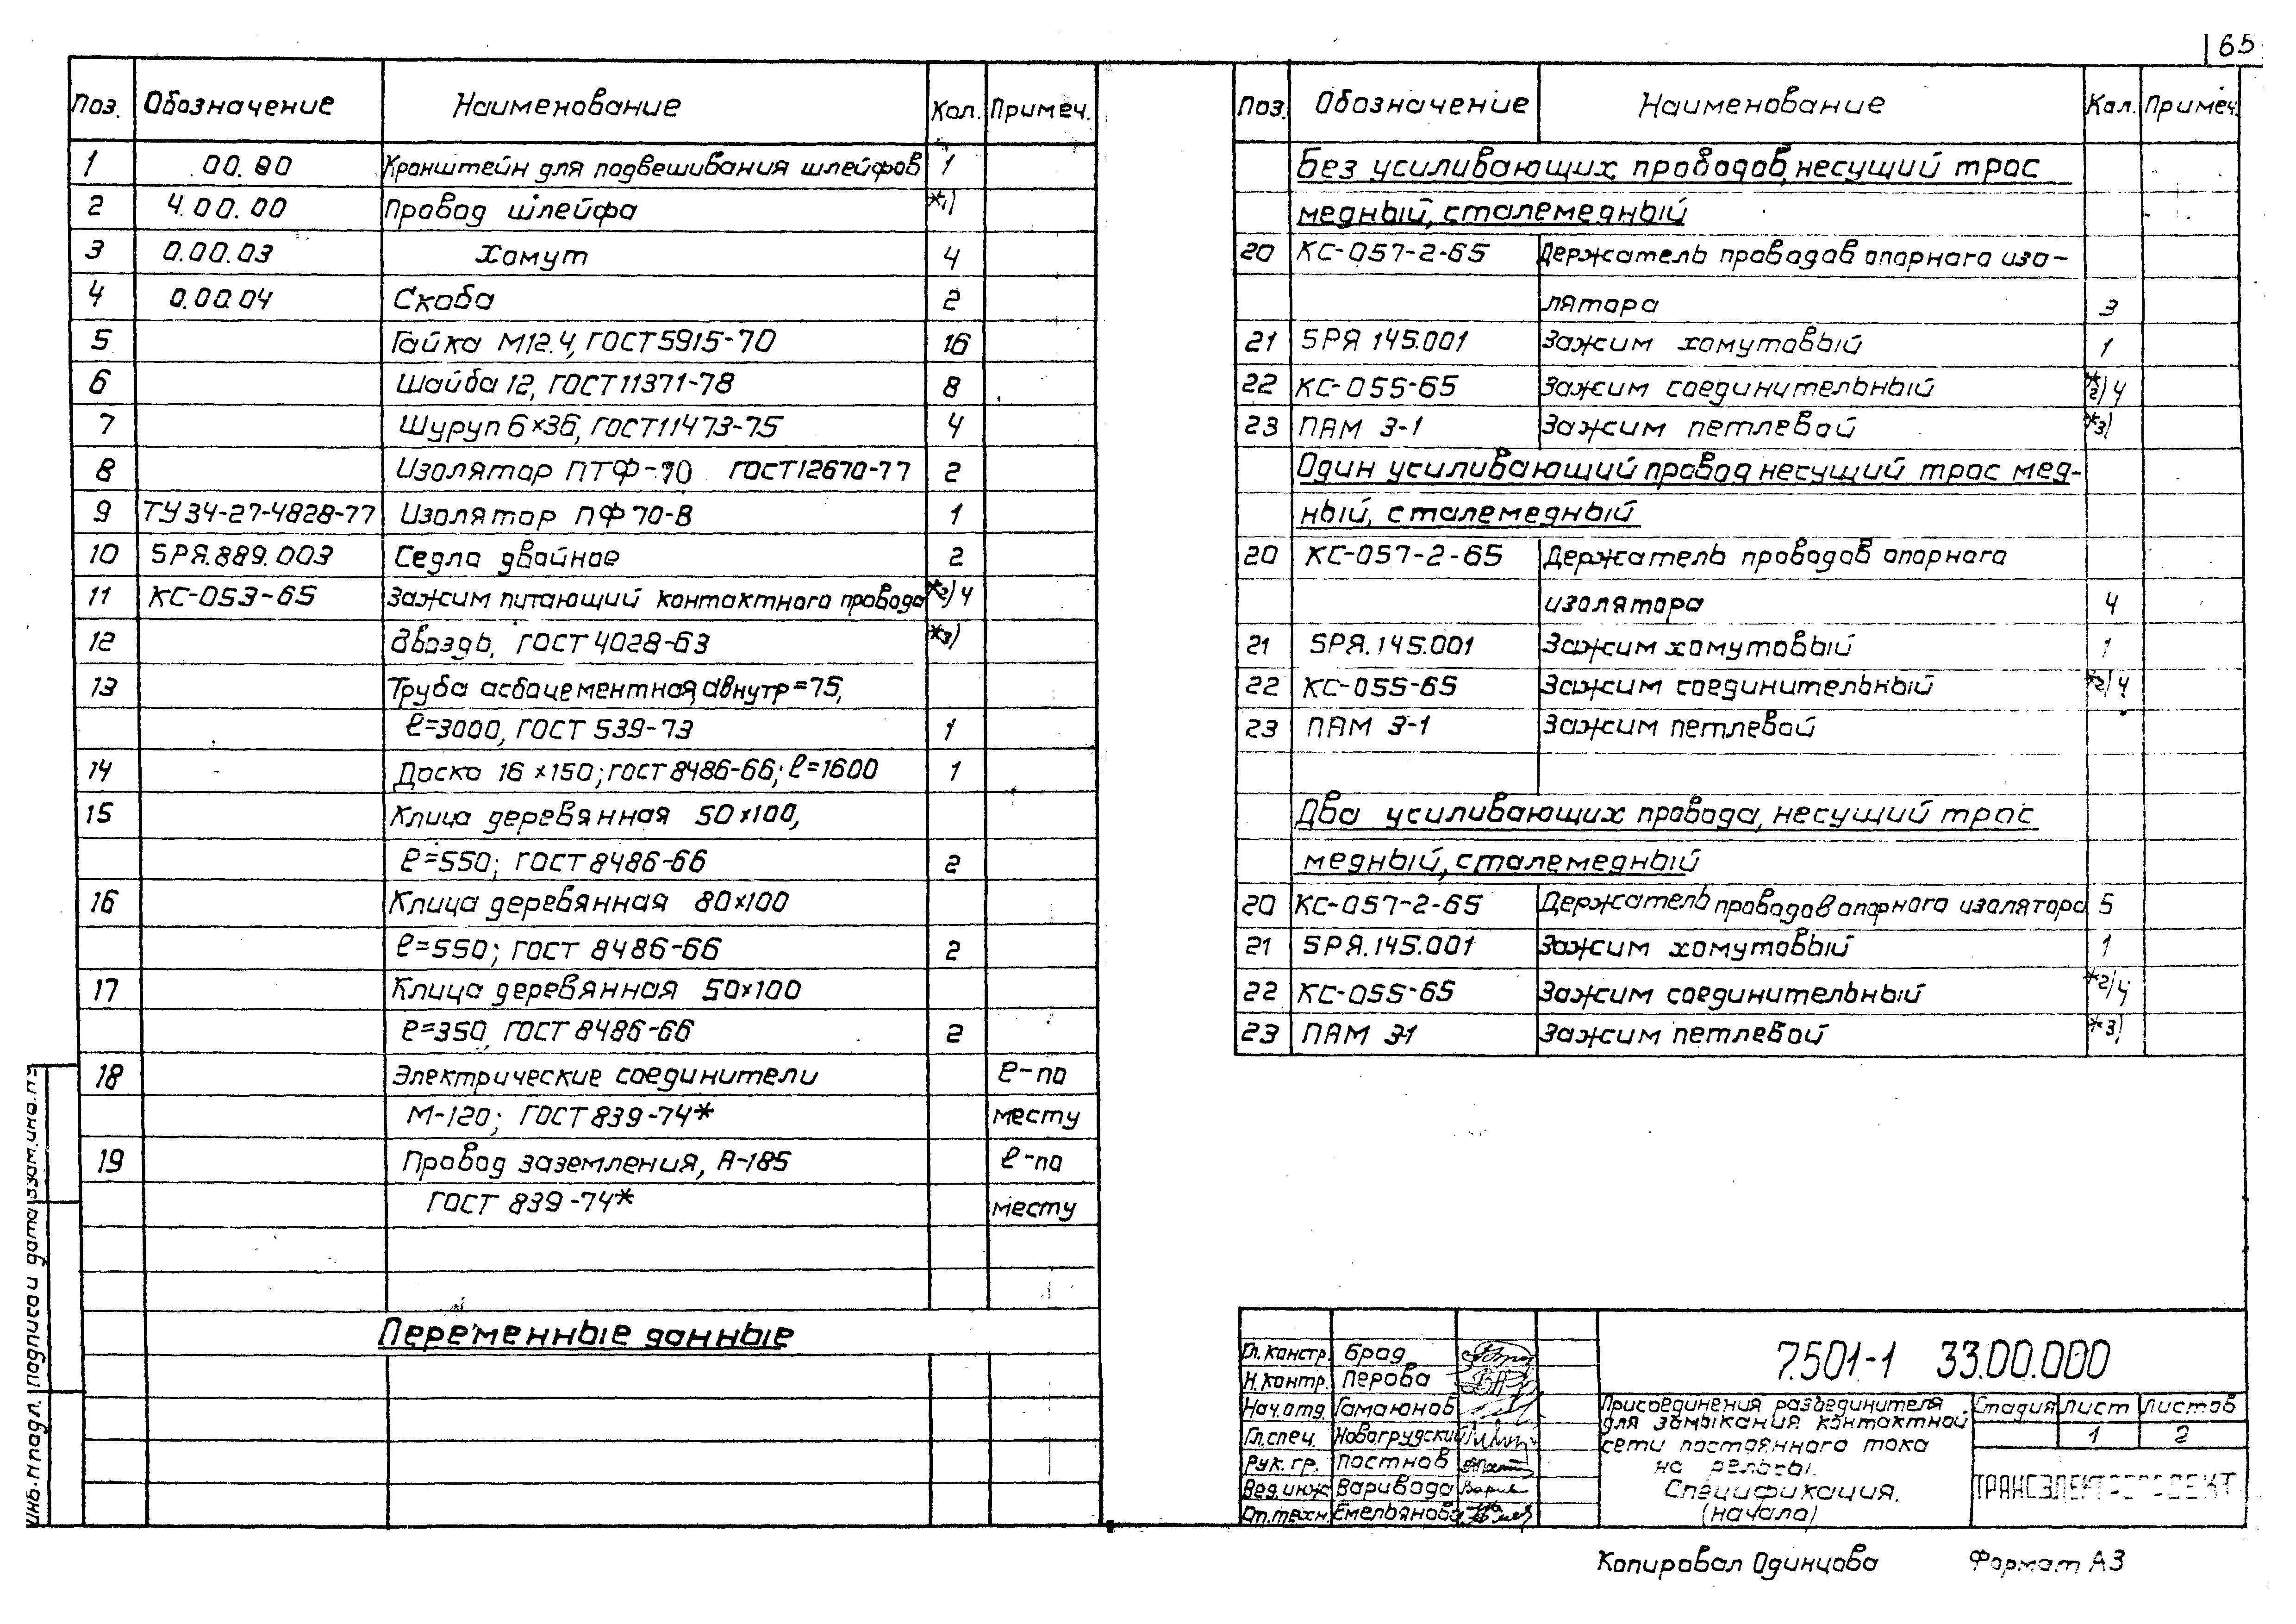 65
Поз. Обозначение Наименование Кол. Примеч.
1 00.80 Кронштейн для подвешивания шлейфов 1
2 4.00.00 Провод шлейфа *1)
3 0.00.03 Хомут 4
4 0.00.04 Скоба 2
5 Гайка М12.4, ГОСТ 5915-70 16
6 Шайба 12, ГОСТ 11371-78 8
7 Шуруп 6×36, ГОСТ 11473-75 4
8 Изолятор ПТФ-70 ГОСТ 12670-77 2
9 ТУ34-27-4828-77 Изолятор ПФ70-В 1
10 5РЯ.889.003 Седло двойное 2
11 КС-053-65 Зажим питающий контактного провода *2) 4
12 Гвоздь, ГОСТ 4028-63 *3)
13 Труба асбоцементная, dвнутр=75,
ℓ=3000, ГОСТ 539-73 1
14 Доска 16×150; ГОСТ 8486-66; ℓ=1600 1
15 Клица деревянная 50×100,
ℓ=550; ГОСТ 8486-66 2
16 Клица деревянная 80×100
ℓ=550; ГОСТ 8486-66 2
17 Клица деревянная 50×100
ℓ=350, ГОСТ 8486-66 2
18 Электрические соединители ℓ-по
М-120; ГОСТ 839-74* месту
19 Провод заземления, А-185 ℓ-по
ГОСТ 839-74* месту
Переменные данные
Поз. Обозначение Наименование Кол. Примеч.
Без усиливающих проводов, несущий трос
медный, сталемедный
20 КС-057-2-65 Держатель проводов опорного изо-
лятора 3
21 5РЯ 145.001 Зажим хомутовый 1
22 КС-055-65 Зажим соединительный *2) 4
23 ПАМ 3-1 Зажим петлевой *3)
Один усиливающий провод несущий трос мед-
ный, сталемедный
20 КС-057-2-65 Держатель проводов опорного
изолятора 4
21 5РЯ.145.001 Зажим хомутовый 1
22 КС-055-65 Зажим соединительный *2) 4
23 ПАМ 3-1 Зажим петлевой
Два усиливающих провода, несущий трос
медный, сталемедный
20 КС-057-2-65 Держатель проводов опорного изолятора 5
21 5РЯ.145.001 Зажим хомутовый 1
22 КС-055-65 Зажим соединительный *2) 4
23 ПАМ 3-1 Зажим петлевой *3)
Гл. констр. Брод
Н. контр. Перова
Нач. отд. Гамаюнов
Гл. спец. Новогрудский
Рук. гр. Постнов
Вед. инж. Варивода
Ст. техн. Емельянова
7.501-1 33.00.000
Присоединения разъединителя
для замыкания контактной
сети постоянного тока
на рельсы.
Спецификация.
(начало)
Стадия Лист Листов
1 2
ТРАНСЭЛЕКТРОПРОЕКТ
Инв. № подл. Подпись и дата Взам. инв. №
Копировал Одинцова Формат А3